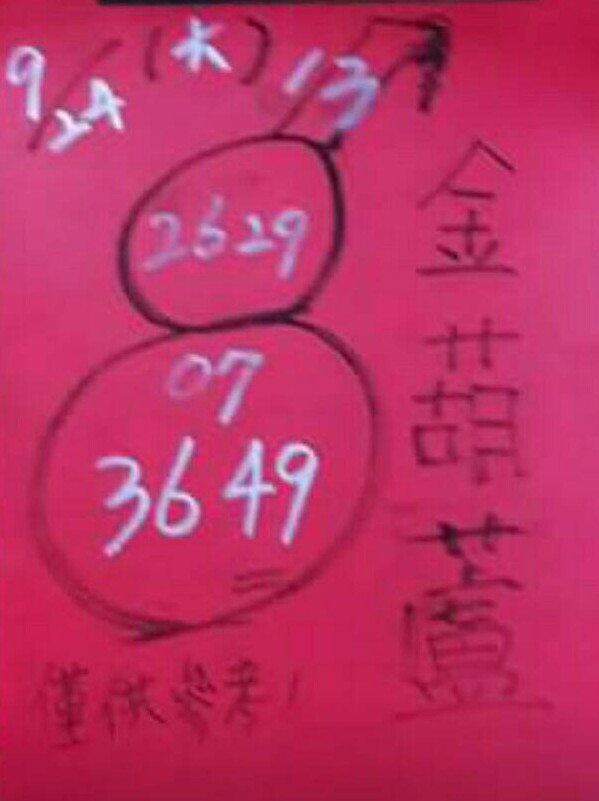 9/24 (木) 13
2629
07
3649
金葫蘆
僅供參考!